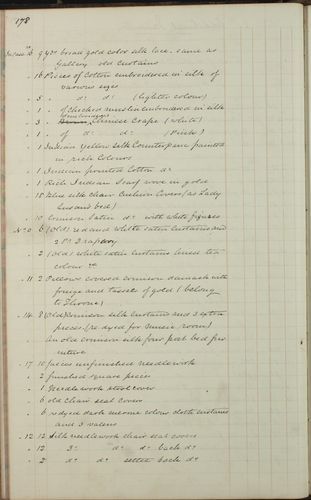 178
9 yds broad gold color silk lace, same as
Gallery old curtains
16 Pieces of Cotton embroidered in silk of
various sizes
5 . do do (lighter colour)
1 . of checked muslin embroidered in silk
embroidered
3 Chinese Crape (White)
1 . of do do (Pink)
1 Indian Yellow Silk Counterpane painted
in rich Colours
1 Indian printed Cotton do
1 Rich Indian Scarf wove in gold
18 blue silk chair Cushion Covers (as Lady
bed)
10 Crimson Satin do with white figures
No 10 6 (Old) red and white satin curtains and
2 Ps Drapery
2 (Old) white satin curtains lined tea
colour do
11 2 Pillows covered crimson damask with
fringe and tassels of gold (belong
to Throne)
14 8 (Old) Crimson silk curtains and 3 extra
pieces (re dyed for music room)
An old crimson silk four post bed fur
niture
17 10 pieces unfinished needlework
2 finished square pieces
1 Needlework stool cover
6 old chair seat covers
6 redyed dark maroone colour cloth curtains
and 3 valens
12 12 Silk needlework chair seat covers
12 do do do back do
2 do do settee back do